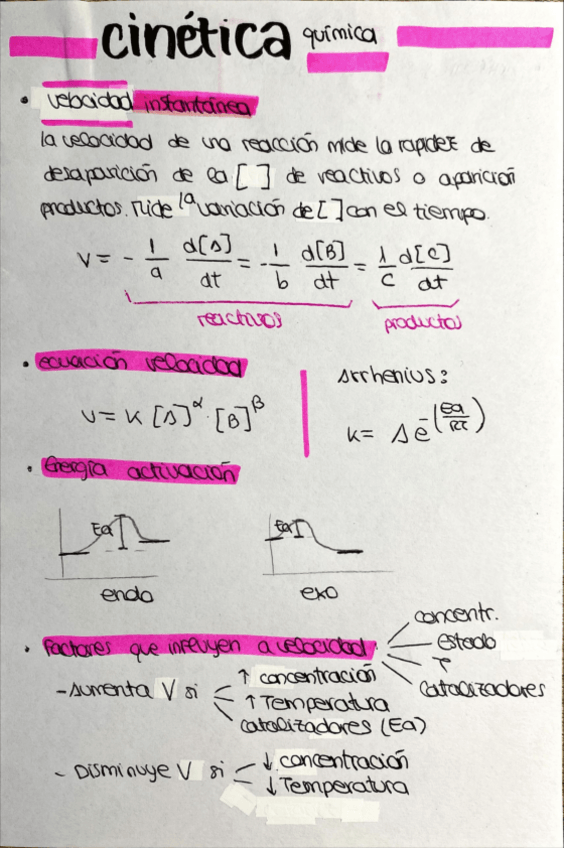 cinética química
• velocidad instantánea
la velocidad de una reacción mide la rapidez de
desaparición de la [ ] de reactivos o aparición
productos. Mide la variación de [ ] con el tiempo.
V = - 1/a d[A]/dt = - 1/b d[B]/dt = 1/c d[C]/dt
reactivos productos
• ecuación velocidad
Arrhenius:
v = K [A]^α · [B]^β
K = A e^-(Ea/RT)
• Energía activación
Ea Ea
endo exo
• Factores que influyen a velocidad
concentr.
estado
Tª
catalizadores
- Aumenta V si
↑ concentración
↑ Temperatura
catalizadores (Ea)
- Disminuye V si
↓ concentración
↓ Temperatura